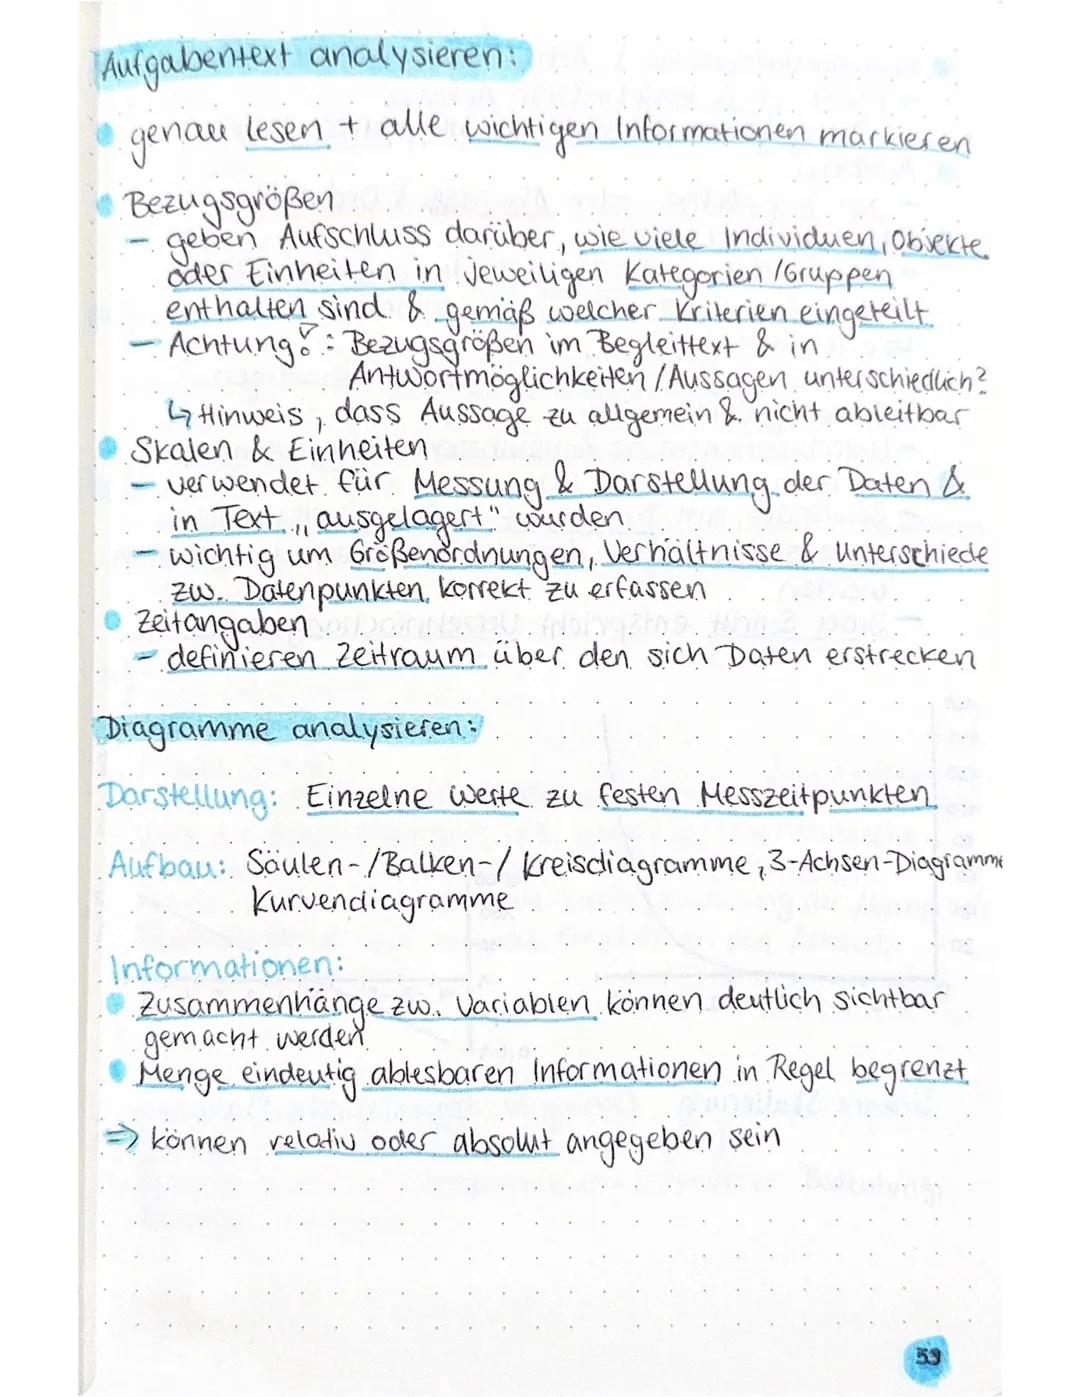 Aufgabentext analysieren:
genau lesen + alle wichtigen Informationen markieren
Bezugsgrößen
- geben Aufschluss darüber, wie viele Individuen, Objekte
oder Einheiten in jeweiligen Kategorien / Gruppen
enthalten sind & gemäß welcher Kriterien eingeteilt
- Achtung!: Bezugsgrößen im Begleittext & in
Antwortmöglichkeiten / Aussagen unterschiedlich?
↳ Hinweis, dass Aussage zu allgemein & nicht ableitbar
Skalen & Einheiten
- verwendet für Messung & Darstellung der Daten &
in Text „ausgelagert" wurden
- wichtig um Größenordnungen, Verhältnisse & Unterschiede
zw. Datenpunkten korrekt zu erfassen
Zeitangaben
- definieren Zeitraum über den sich Daten erstrecken
Diagramme analysieren:
Darstellung: Einzelne Werte zu festen Messzeitpunkten
Aufbau: Säulen-/Balken-/Kreisdiagramme, 3-Achsen-Diagramme
Kurvendiagramme
Informationen:
Zusammenhänge zw. Variablen können deutlich sichtbar
gemacht werden
Menge eindeutig ablesbaren Informationen in Regel begrenzt
⇒ können relativ oder absolut angegeben sein
59